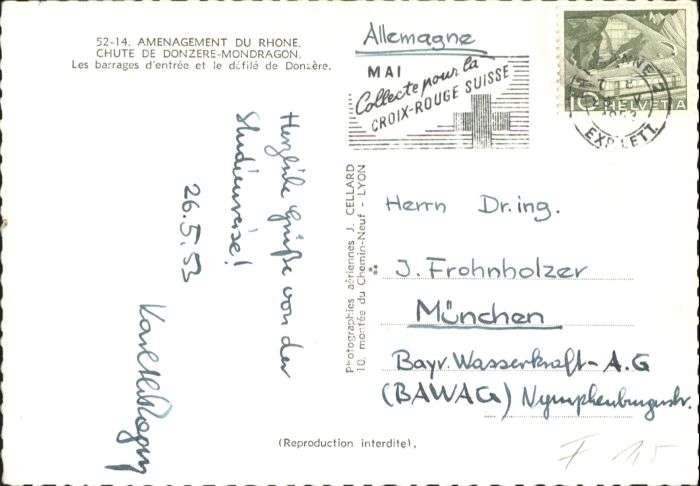 52-14. AMENAGEMENT DU RHONE.
CHUTE DE DONZERE-MONDRAGON.
Les barrages d'entrée et le défilé de Donzère.
Allemagne
MAI
Collecte pour la
CROIX-ROUGE SUISSE
10 HELVETIA
EXP. LETT.
Herzliche Grüße von der
Studienreise!
26.5.53
Photographies aériennes J. CELLARD
10, montée du Chemin-Neuf - LYON
Herrn Dr.ing.
J. Frohnholzer
München
Bayr. Wasserkraft-A.G
(BAWAG) Nymphenburgerstr.
(Reproduction interdite).